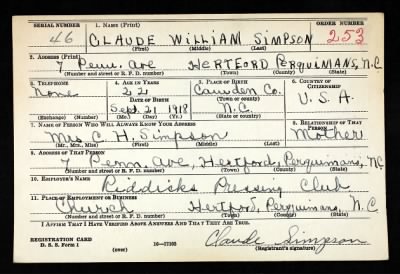 SERIAL NUMBER 1. Name (Print) ORDER NUMBER
46 CLAUDE WILLIAM SIMPSON 253
(First) (Middle) (Last)
2. Address (Print)
7 Penn. Ave HERTFORD Perquimans, N.C.
(Number and street or R. F. D. number) (Town) (County) (State)
3. Telephone 4. Age in Years 5. Place of Birth 6. Country of Citizenship
None 22 Camden Co. U.S.A.
Date of Birth
Sept. 21 1918 N.C.
(Exchange) (Number) (Mo.) (Day) (Yr.) (State or country)
7. Name of Person Who Will Always Know Your Address 8. Relationship of That Person
Mrs C. H. Simpson Mother
(Mr., Mrs., Miss) (First) (Middle) (Last)
9. Address of That Person
7 Penn. Ave, Hertford, Perquimans, N.C
(Number and street or R. F. D. number) (Town) (County) (State)
10. Employer's Name
Riddicks Pressing Club
11. Place of Employment or Business
Church Hertford, Perquimans, N.C
(Number and street or R. F. D. number) (Town) (County) (State)
I Affirm That I Have Verified Above Answers and That They Are True.
REGISTRATION CARD
D. S. S. Form 1 (over) 16—17105 Claude Simpson
(Registrant's signature)